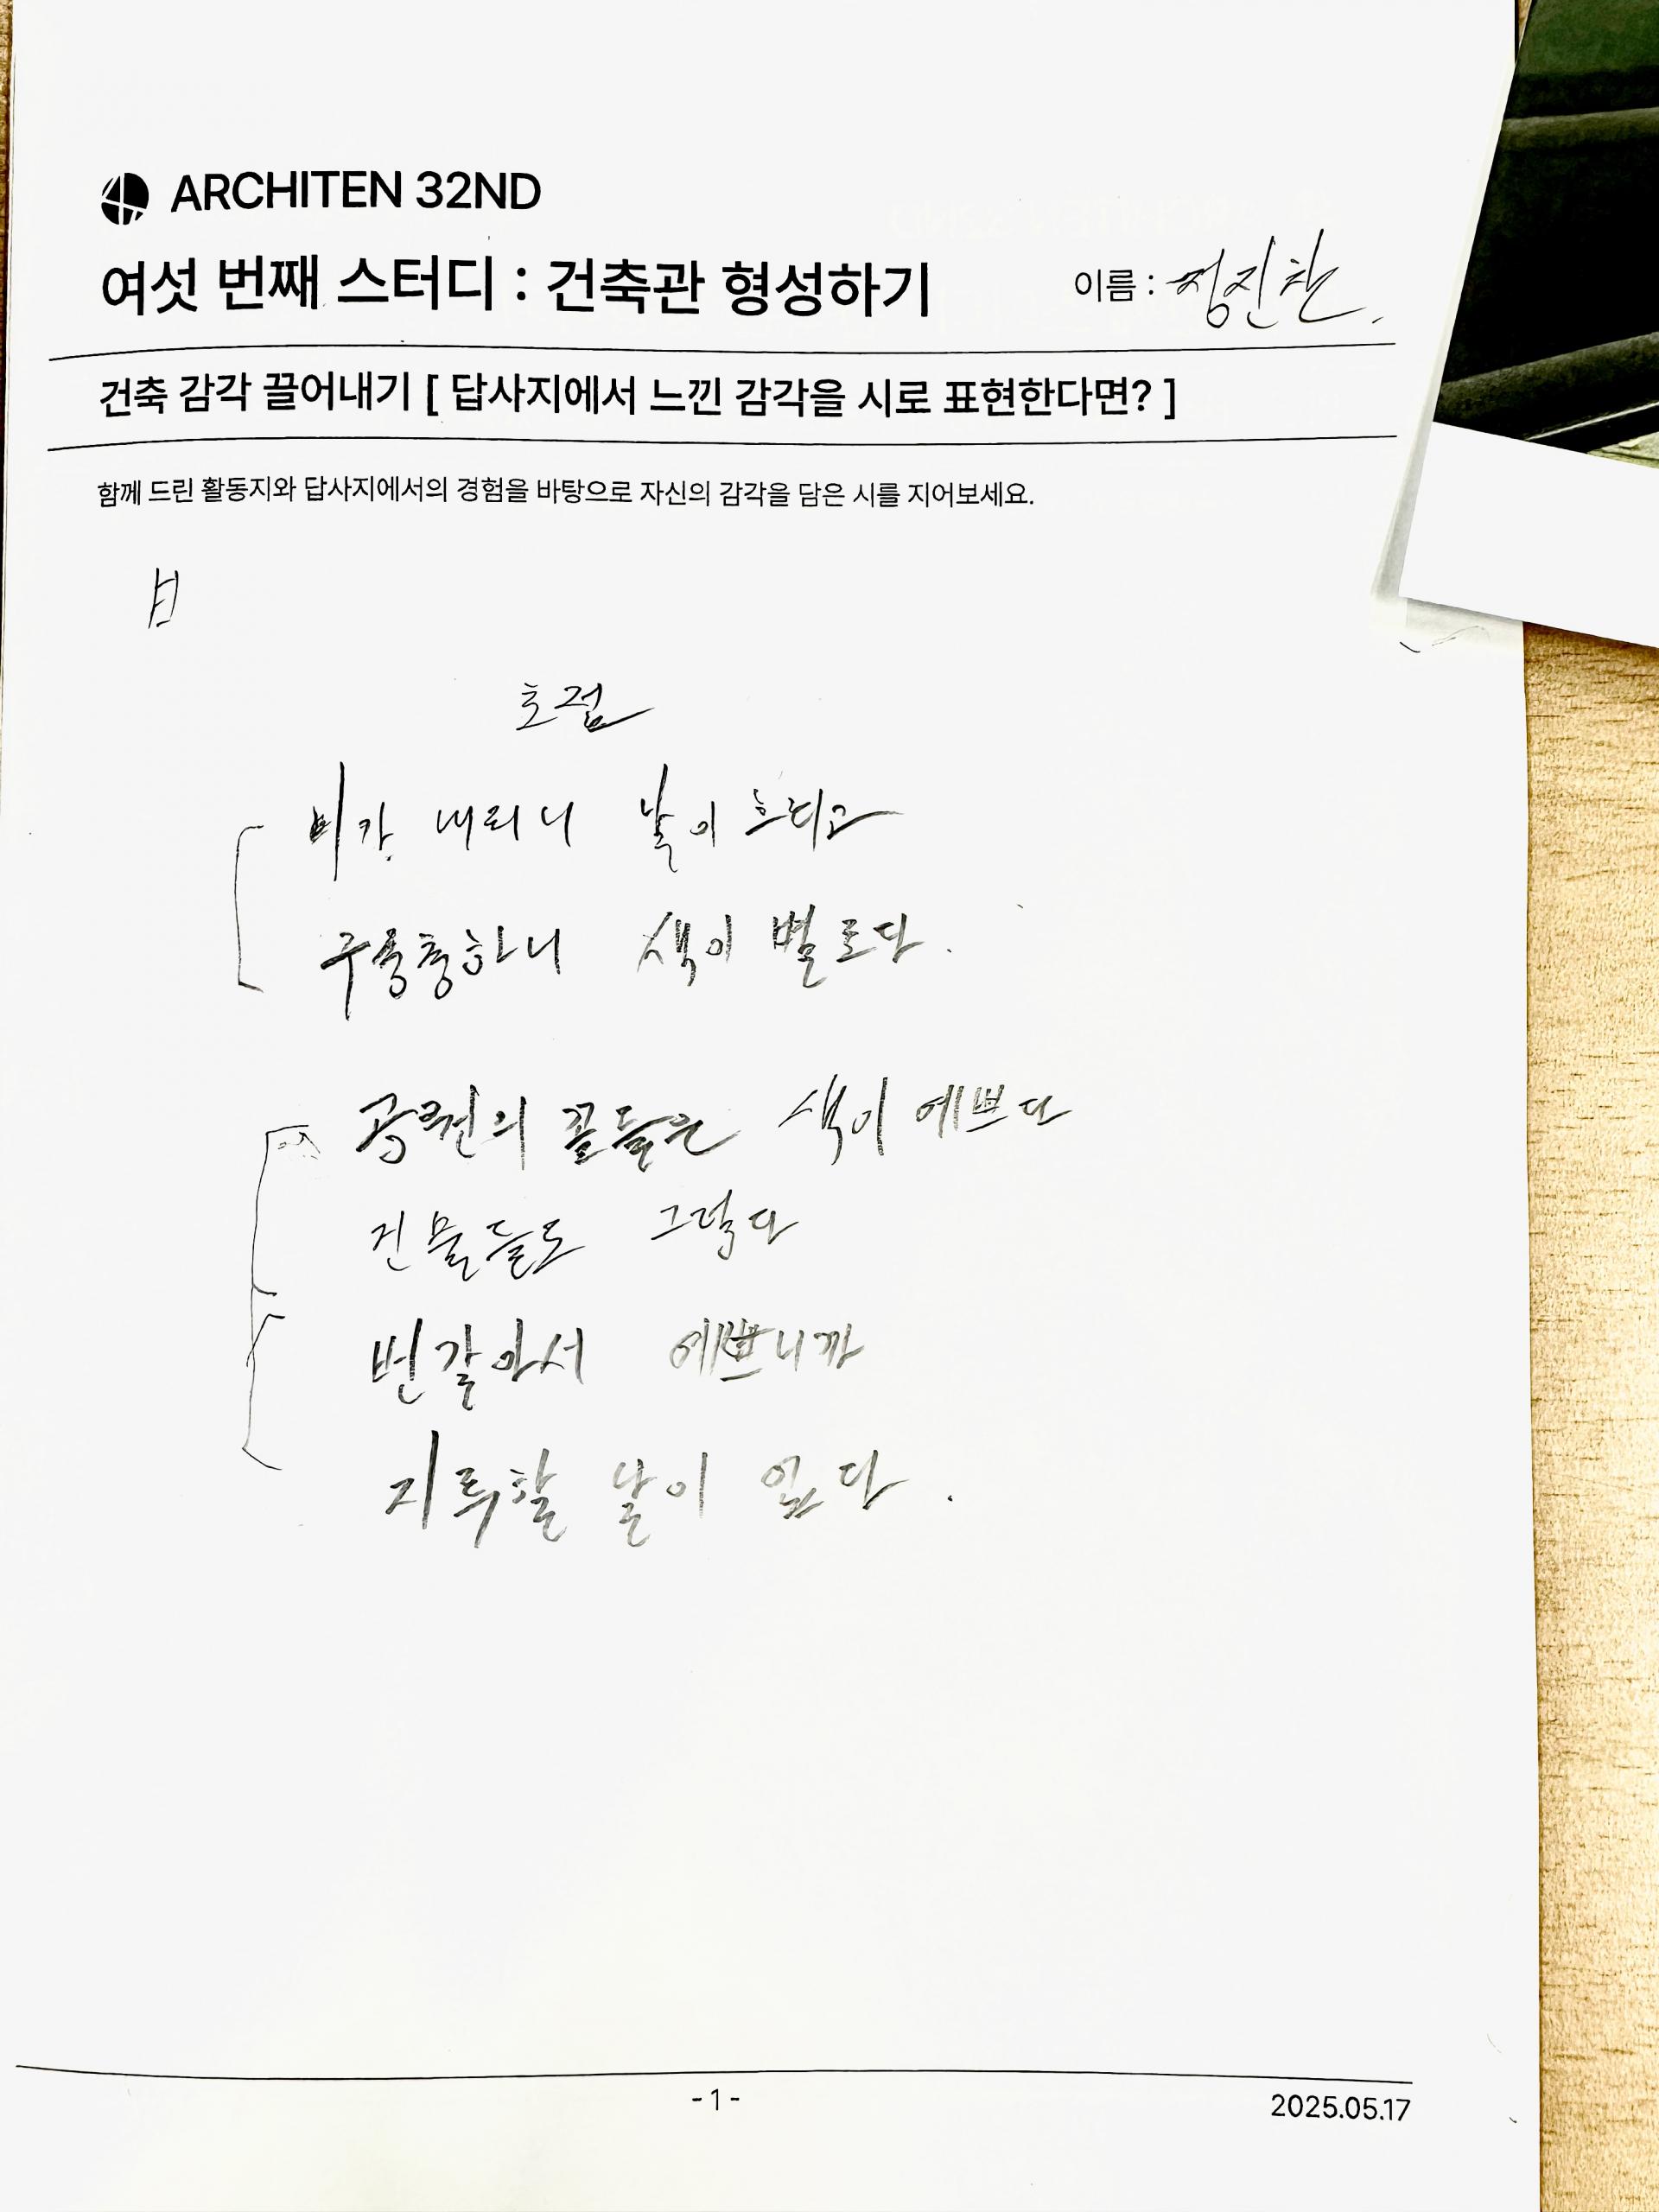 ARCHITEN 32ND
여섯 번째 스터디 : 건축관 형성하기
이름 : 정진찬
건축 감각 끌어내기 [ 답사지에서 느낀 감각을 시로 표현한다면? ]
함께 드린 활동지와 답사지에서의 경험을 바탕으로 자신의 감각을 담은 시를 지어보세요.
비가 내리니 날이 흐리고
구중충하니 색이 별로다.
공원의 꽃들은 색이 예쁘다
건물들도 그렇다
번갈아서 예쁘니까
지루할 날이 없다.
- 1 -
2025.05.17